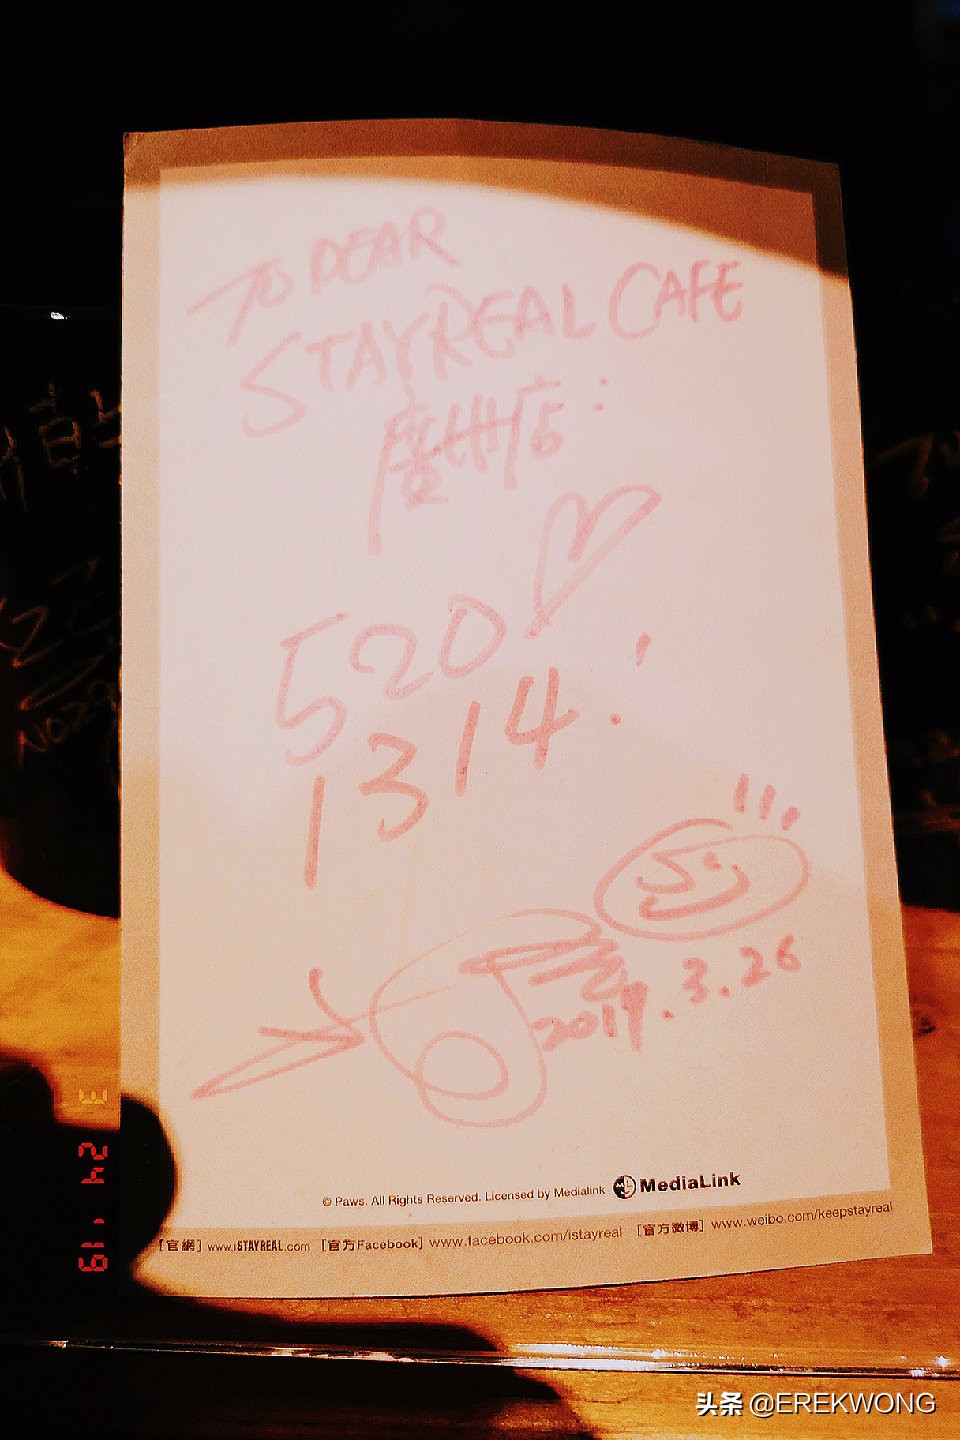 TO DEAR
STAYREAL CAFE
廣州店：
520
1314！
2017.3.26
© Paws. All Rights Reserved. Licensed by Medialink MediaLink
[官網] www.iSTAYREAL.com [官方Facebook] www.facebook.com/istayreal [官方微博] www.weibo.com/keepstayreal
3 24 '19
头条 @EREKWONG